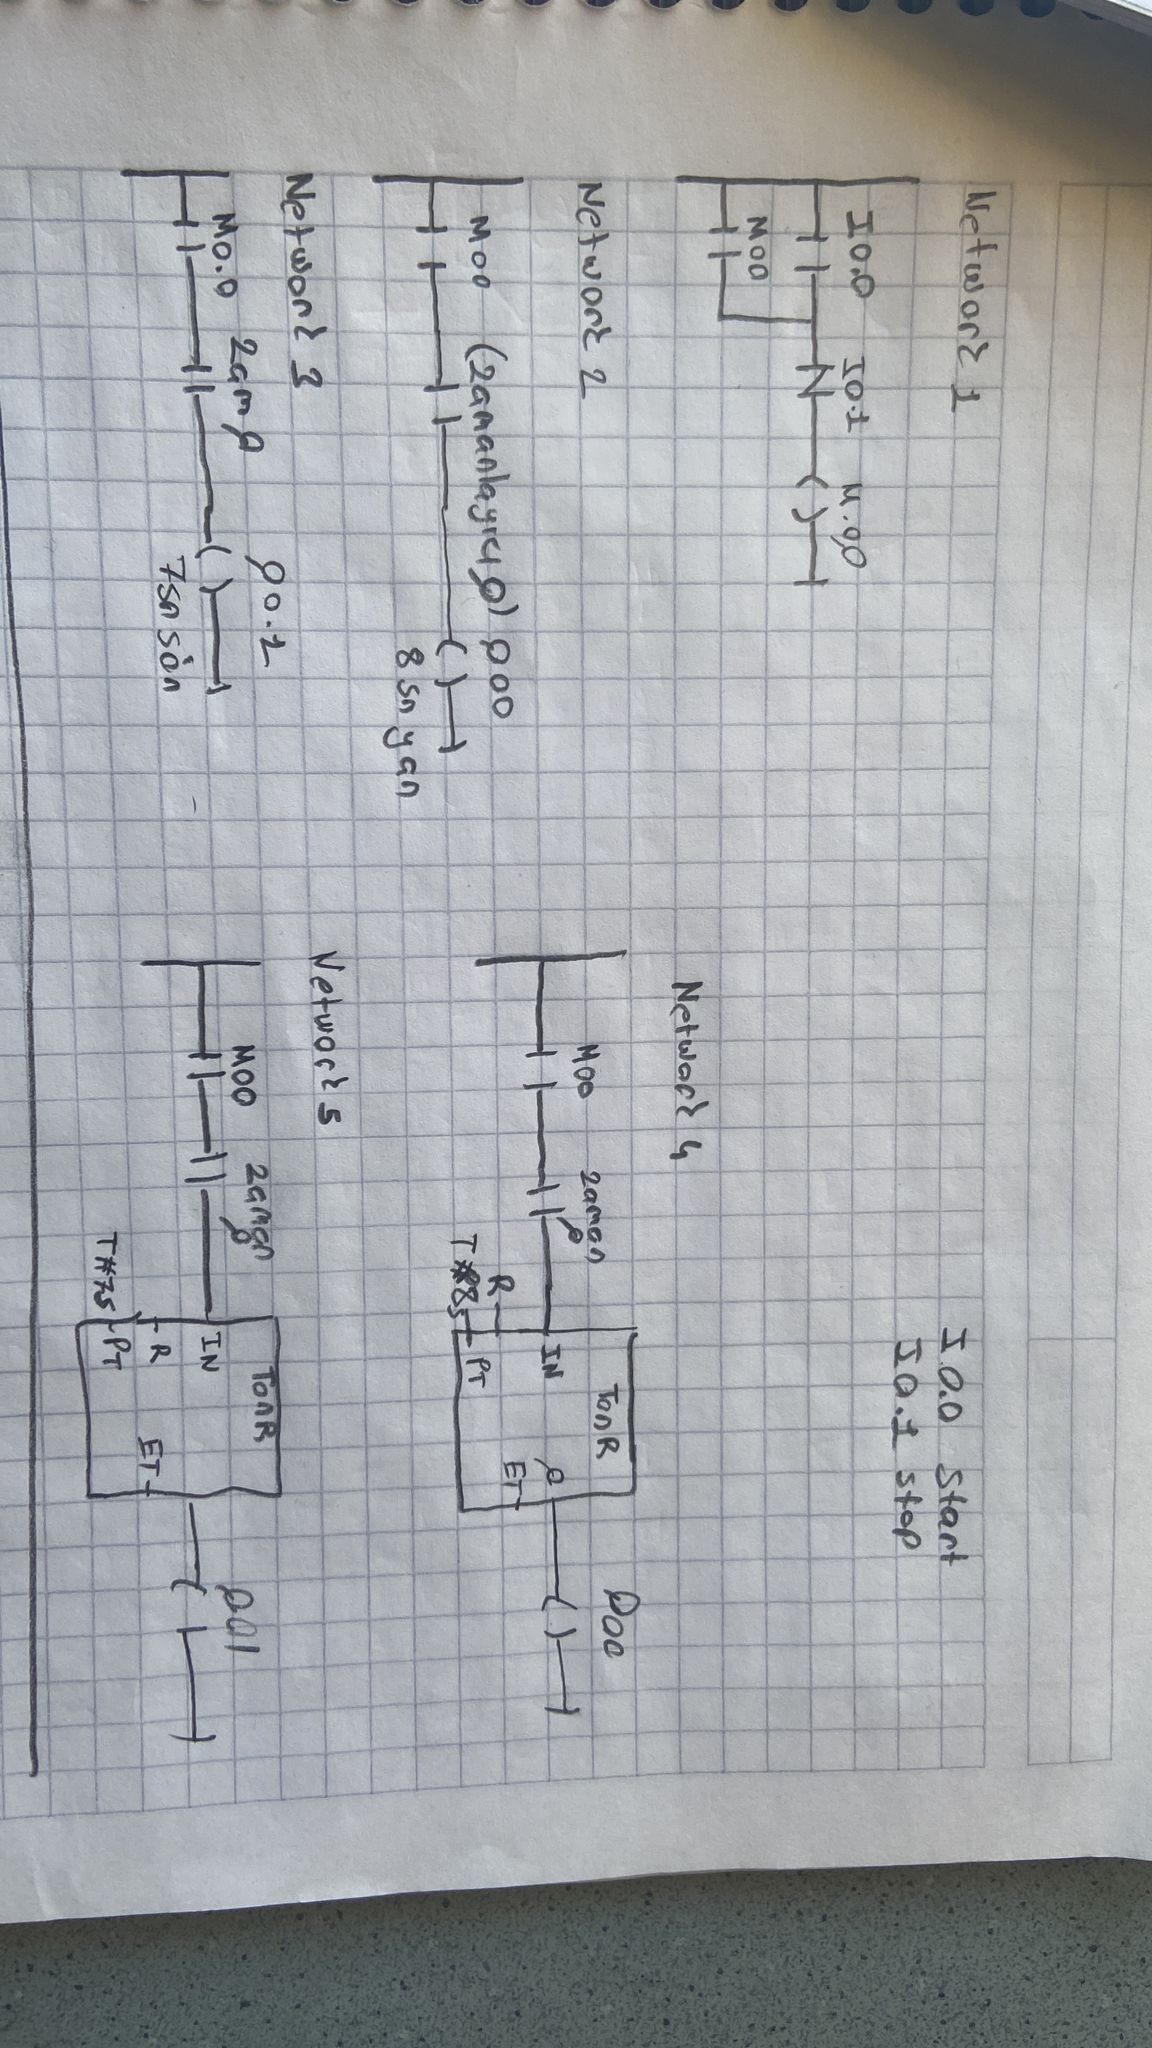 Network 1
I0.0 I0.1 M.00
M00
Network 2
M00 (zamanlayıcı Q) Q00
8 sn yan
Network 3
M0.0 zam Q Q0.1
7sn sön
I0.0 Start
I0.1 stop
Network 4
M00 zaman Q Q00
TonR
IN Q
R ET
PT
Network 5
M00 zaman Q Q01
TonR
IN
R ET
T#7s PT